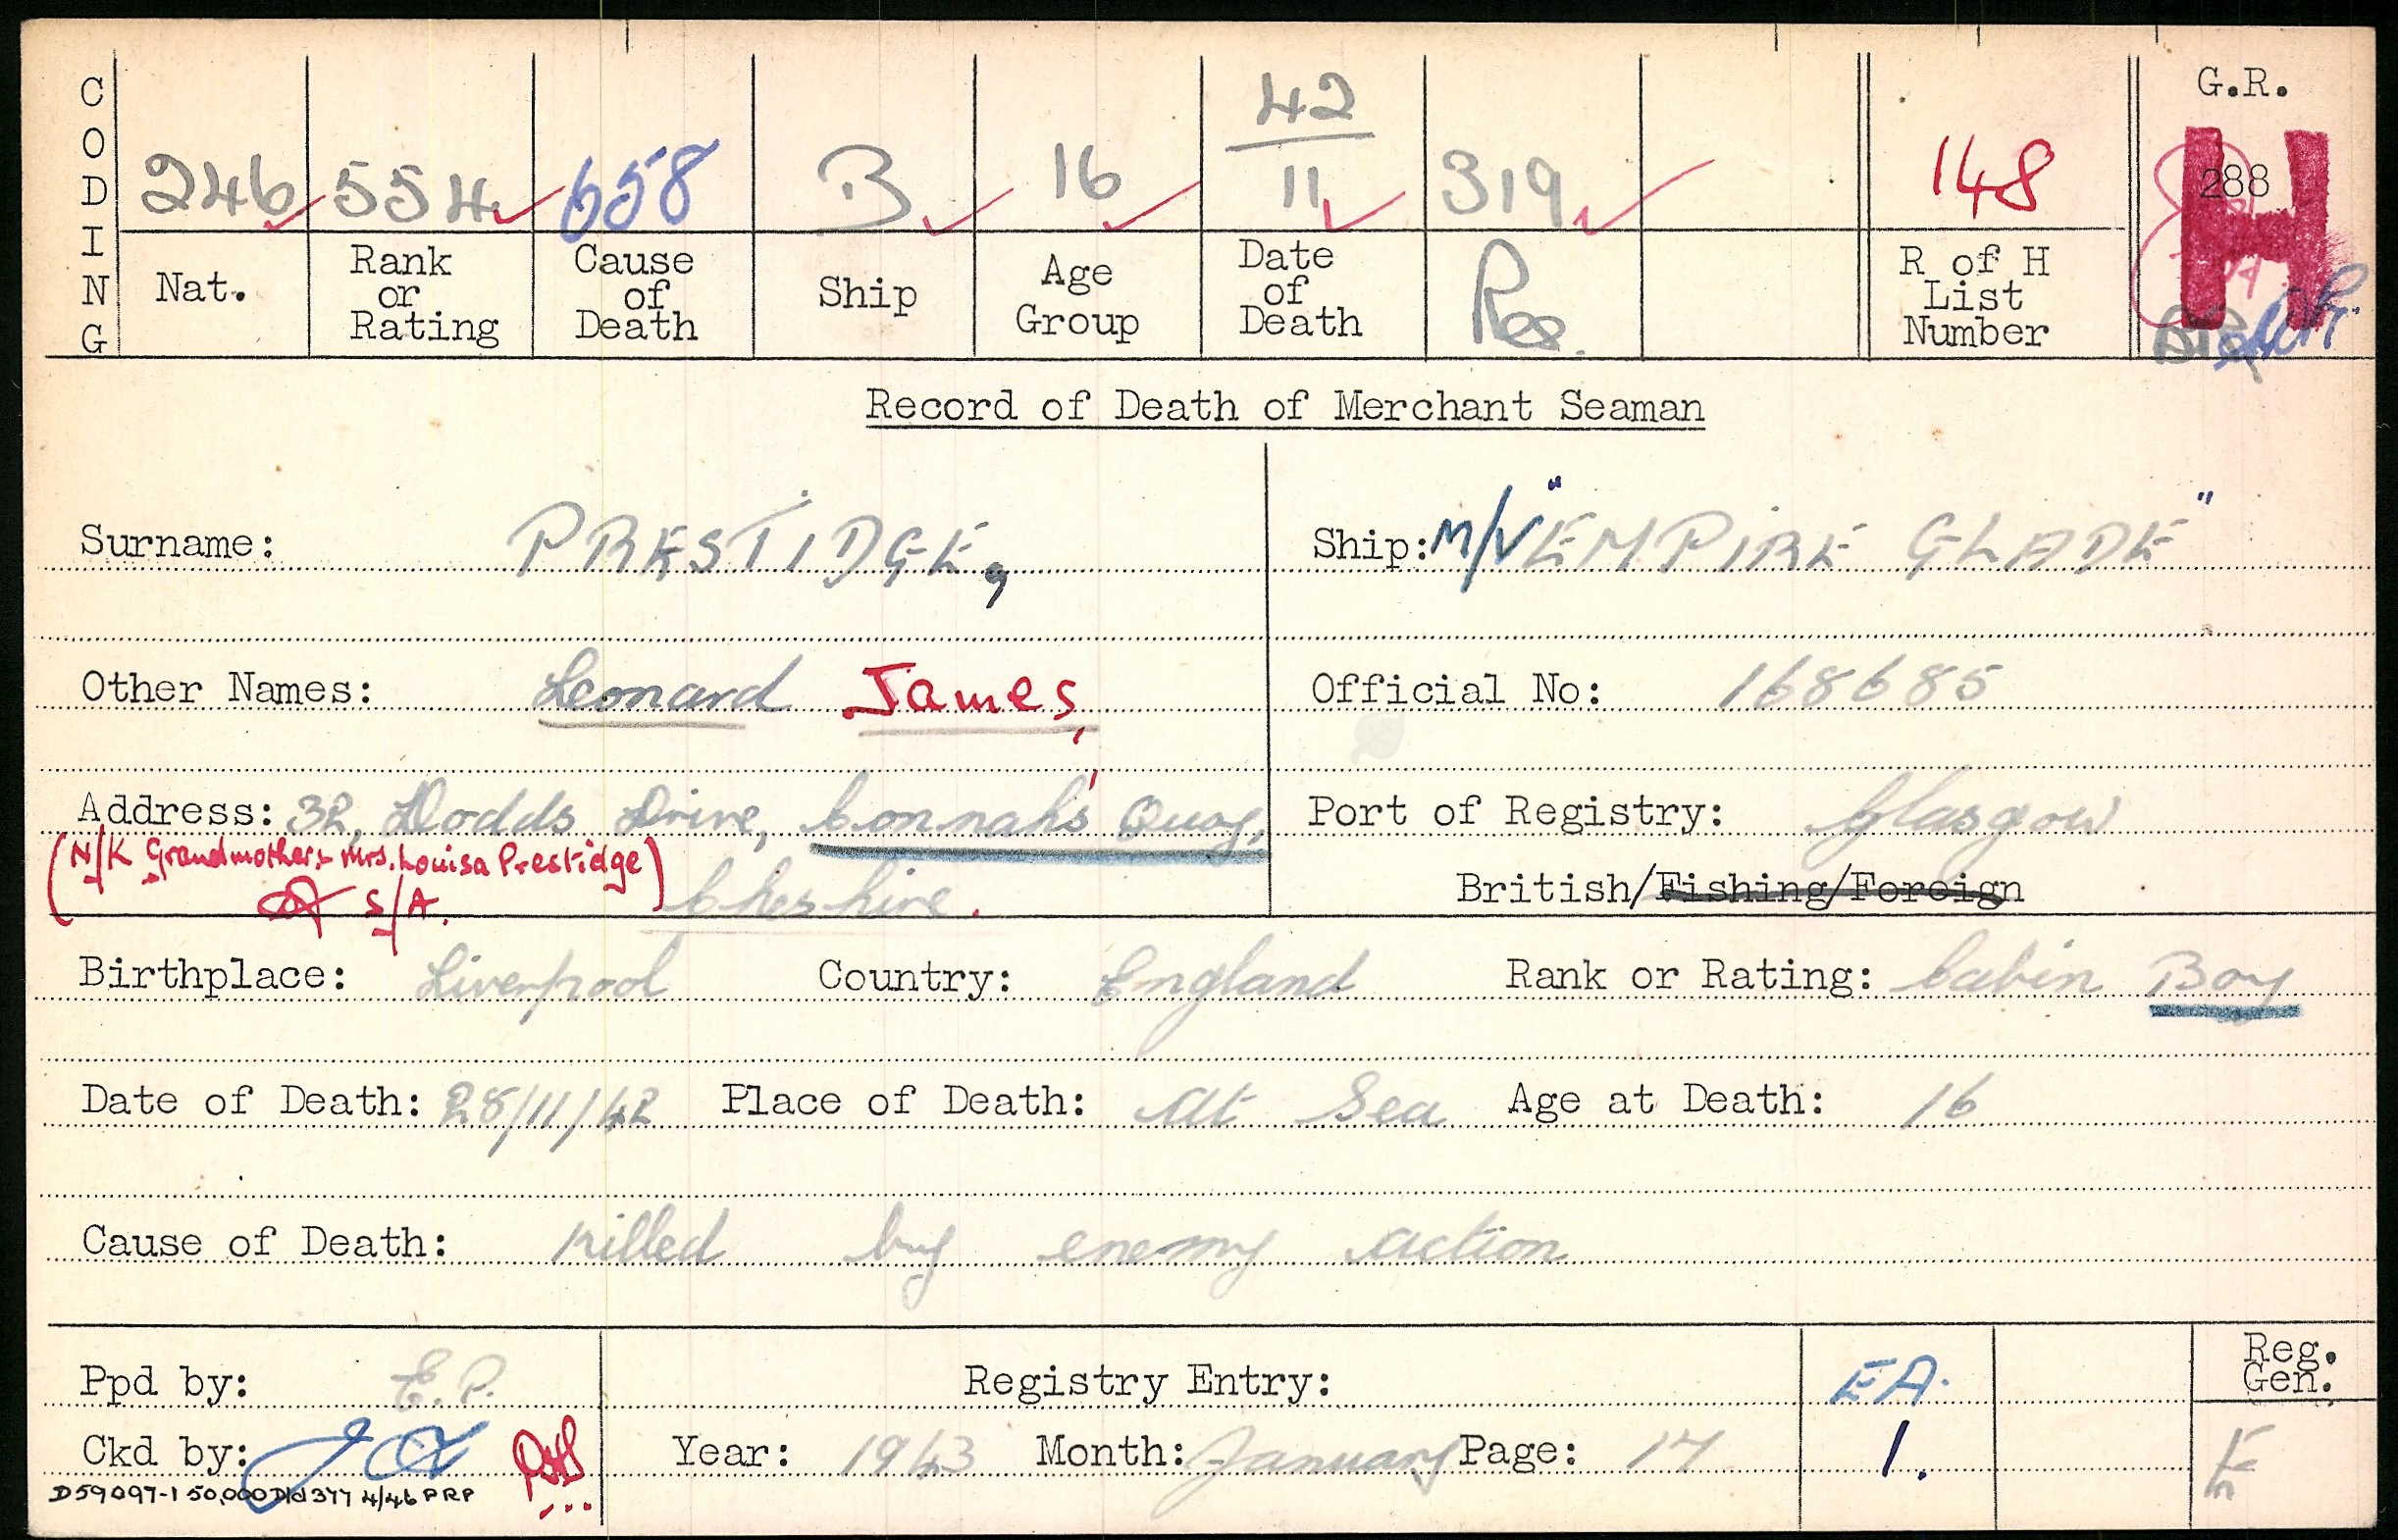 CODING
246 554 658 B 16 42/11 319 148 G.R.
288
H
Nat. Rank or Rating Cause of Death Ship Age Group Date of Death Res. R of H List Number
Record of Death of Merchant Seaman
Surname: PRESTIDGE, Ship: M/V "EMPIRE GLADE"
Other Names: Leonard James, Official No: 168685
Address: 32, Dodds Drive, Connah's Quay, Port of Registry: Glasgow
(N/K Grandmother:- Mrs. Louisa Prestidge)
S/A. Cheshire. British/Fishing/Foreign
Birthplace: Liverpool Country: England Rank or Rating: Cabin Boy
Date of Death: 28/11/42 Place of Death: At Sea Age at Death: 16
Cause of Death: Killed by enemy action
Ppd by: E.P. Registry Entry: EA. Reg. Gen.
Ckd by: Year: 1943 Month: January Page: 17 1. E
D59097-1 50,000 D/d 377 4/46 PRP